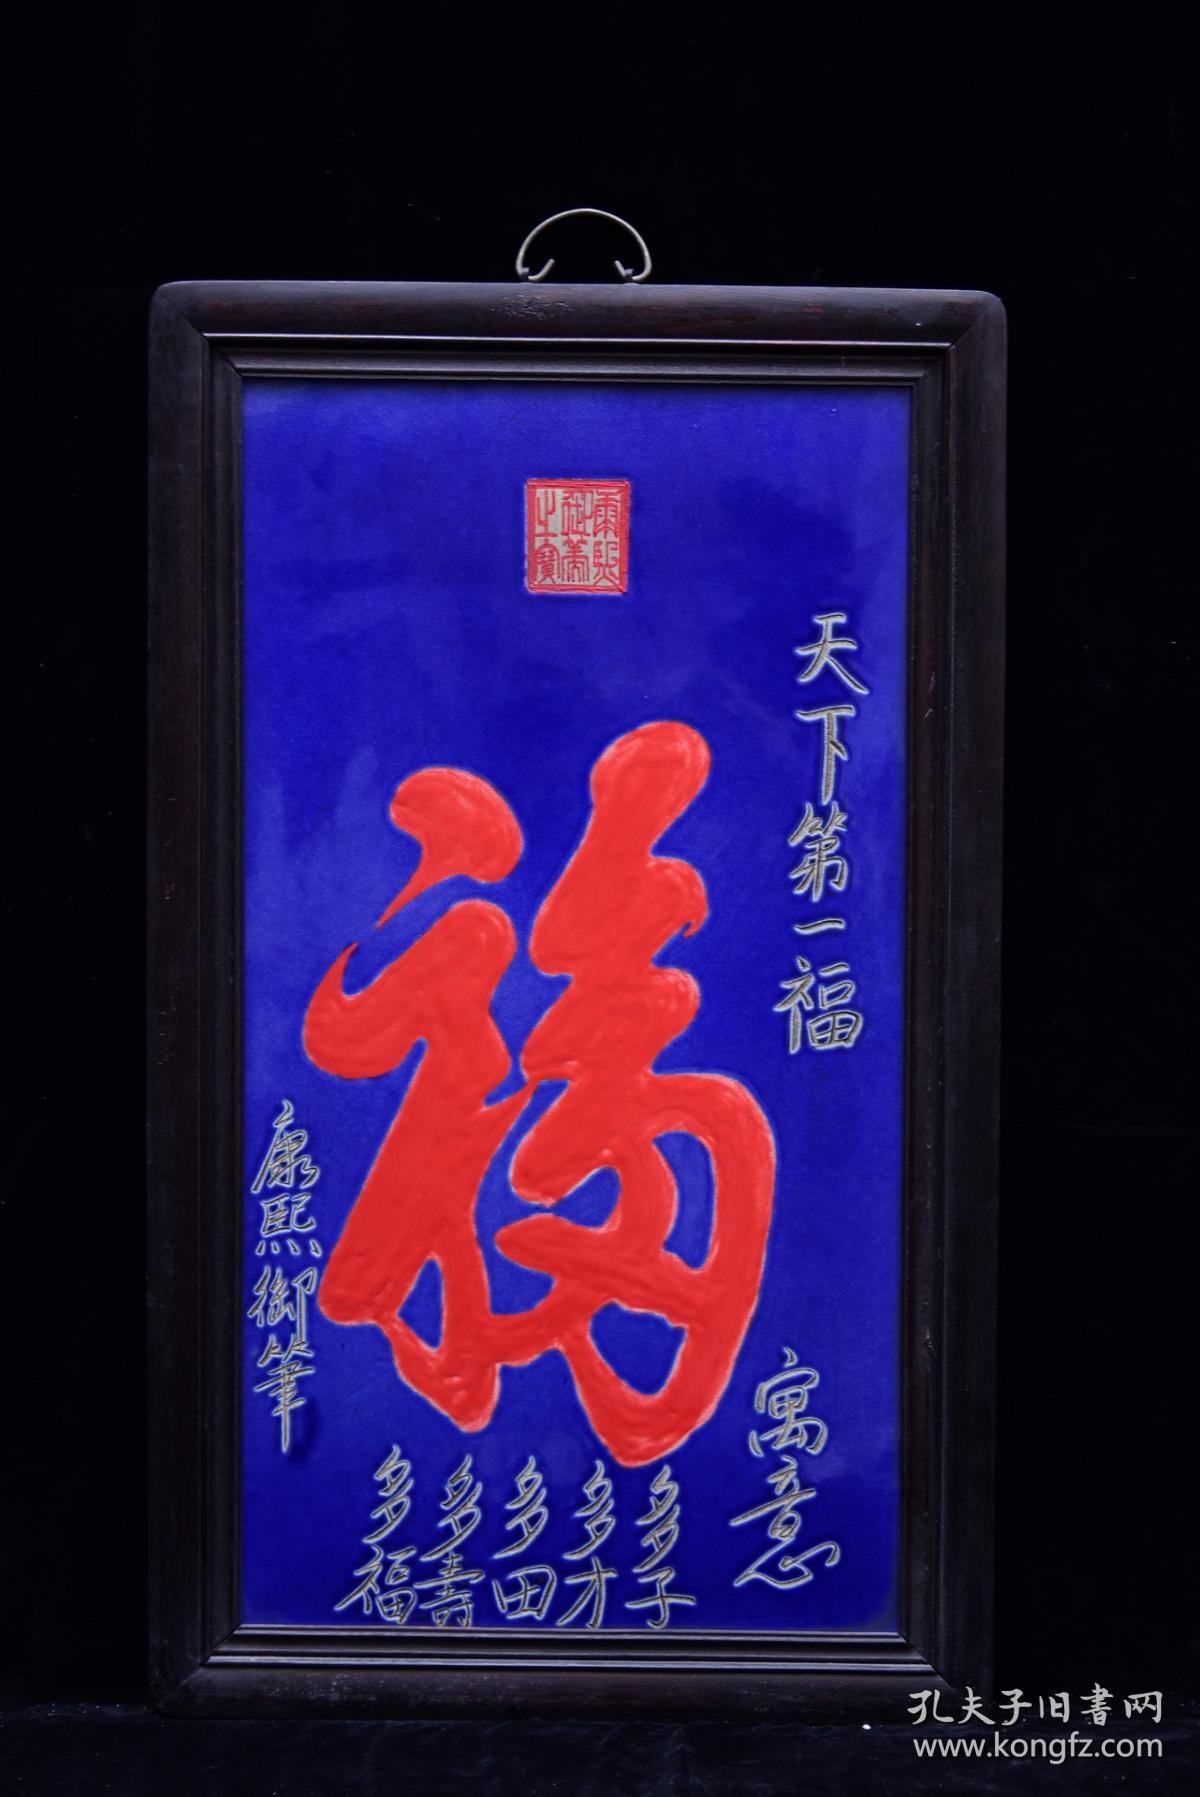 康熙御筆之寶
天下第一福
福
寓意
多子
多才
多田
多壽
多福
康熙御筆
孔夫子旧書网
www.kongfz.com